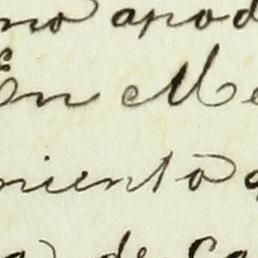 mo apod
En Me
miento
de Ca